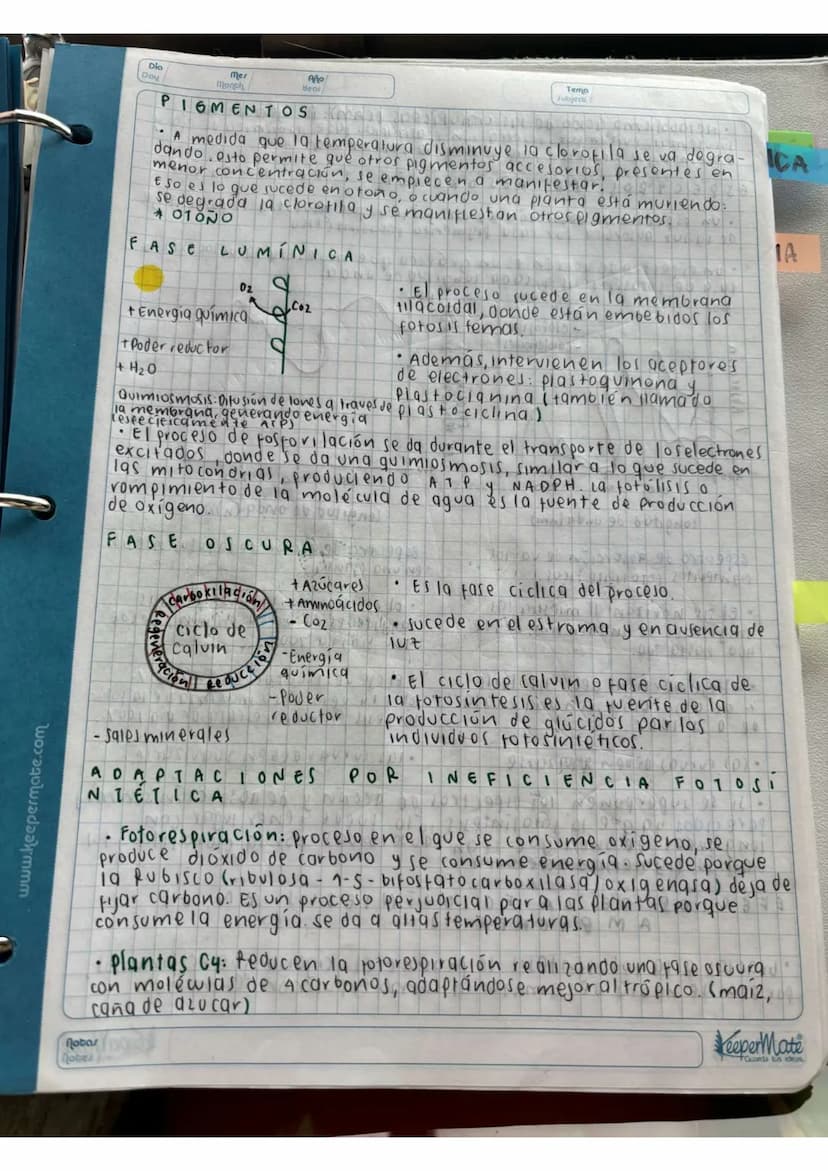 Día
Day
Mes
Month
Año
Year
Tema
Subject
PIGMENTOS
• A medida que la temperatura disminuye la clorofila se va degra-
dando. esto permite que otros pigmentos accesorios, presentes en
menor concentración, se empiecen a manifestar.
Eso es lo que sucede en otoño, o cuando una planta está muriendo:
se degrada la clorofila y se manifiestan otros pigmentos.
* OTOÑO
ICA
IA
FASE LUMÍNICA
O2
CO2
+ Energía química
+ Poder reductor
+ H2O
• El proceso sucede en la membrana
tilacoidal, donde están embebidos los
fotosistemas.
• Además, intervienen los aceptores
de electrones: plastoquinona y
plastocianina (también llamado
plastociclina)
Quimiosmosis: Difusión de Iones a través de
la membrana, generando energía
(específicamente ATP)
• El proceso de fosforilación se da durante el transporte de los electrones
excitados, donde se da una quimiosmosis, similar a lo que sucede en
las mitocondrias, produciendo ATP y NADPH. La fotólisis o
rompimiento de la molécula de agua es la fuente de producción
de oxígeno.
FASE OSCURA
carboxilación
Reducción
Regeneración
Ciclo de
Calvin
+ Azúcares
+ Aminoácidos
- CO2
- Energía
química
- Poder
reductor
- Sales minerales
• Es la fase cíclica del proceso.
• Sucede en el estroma y en ausencia de
luz
• El ciclo de calvin o fase cíclica de
la fotosíntesis es la fuente de la
producción de glúcidos par los
individuos fotosintéticos.
ADAPTACIONES POR INEFICIENCIA FOTOSÍ
NTÉTICA
• Fotorespiración: proceso en el que se consume oxígeno, se
produce dióxido de carbono y se consume energía. Sucede porque
la Rubisco (ribulosa-1-5-bifosfato carboxilasa/oxigenasa) deja de
fijar carbono. Es un proceso perjudicial para las plantas porque
consume la energía. se da a altas temperaturas.
• Plantas C4: Reducen la fotorespiración realizando una fase oscura
con moléculas de 4 carbonos, adaptándose mejor al trópico. (maíz,
caña de azucar)
Notas
Notes
KeeperMate
Guarda tus ideas.
www.keepermate.com